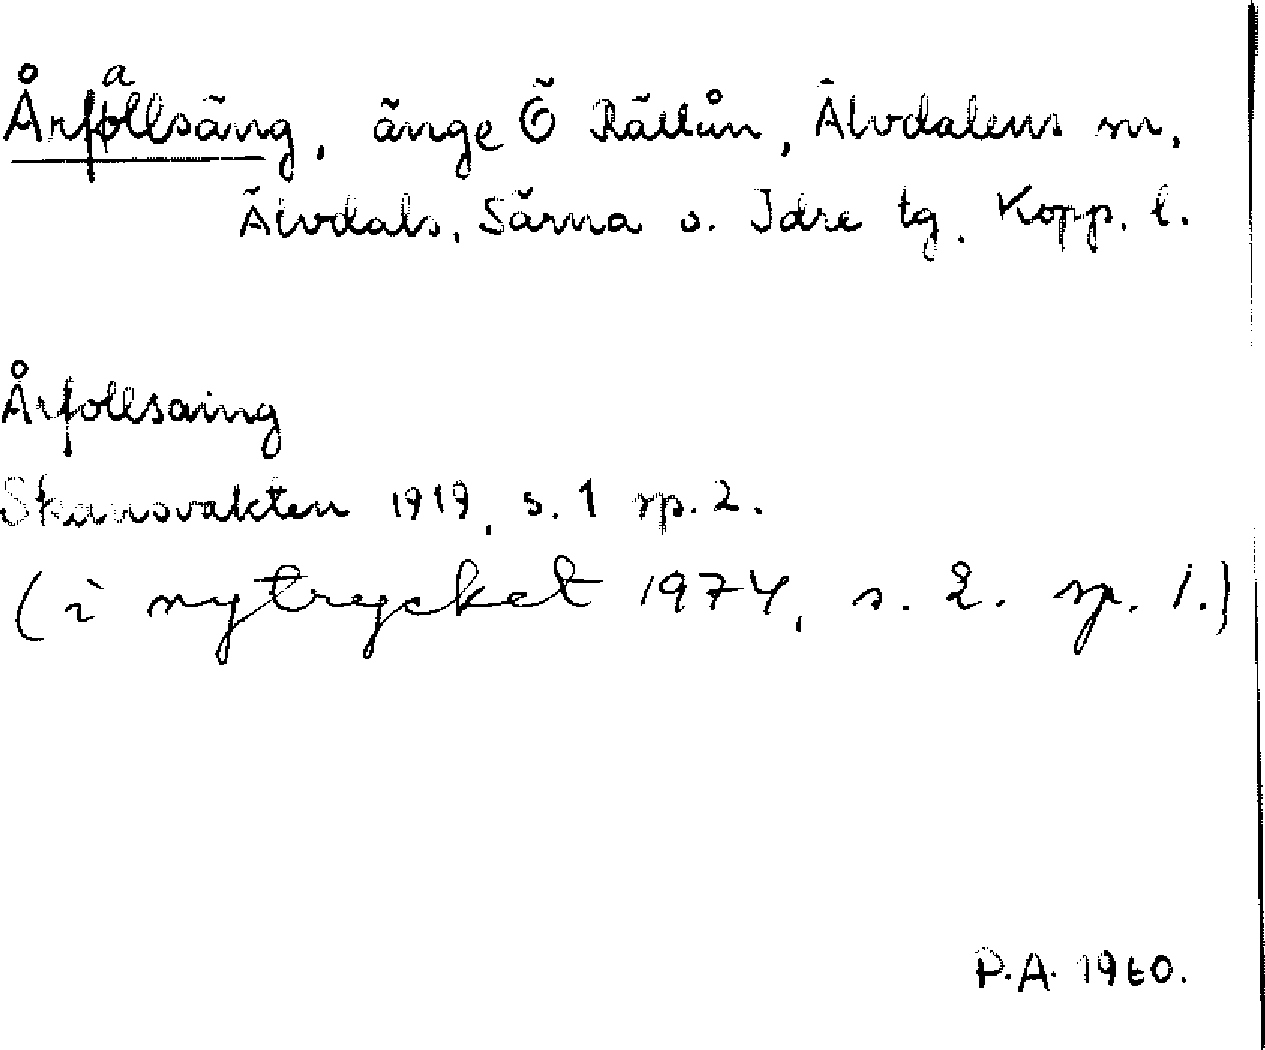 Årfallsäng, änge Ö Rällån, Älvdalens sn,
Älvdals, Särna o. Idre tg. Kopp. l.
Årfollsaing
Skansvakten 1919, s. 1 sp. 2.
(i nytrycket 1974, s. 2. sp. 1.)
P.A. 1960.